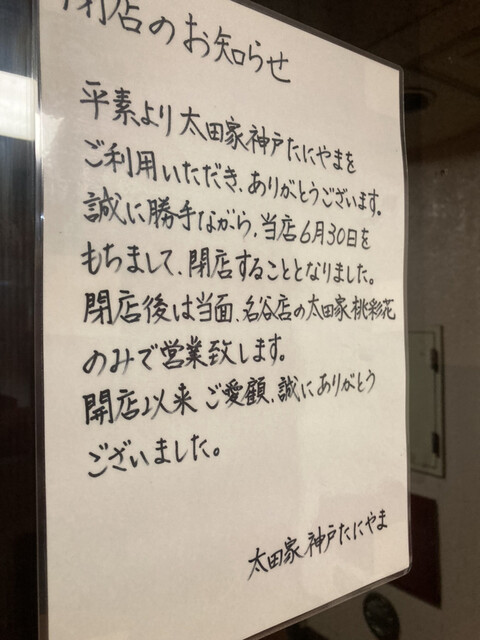 閉店のお知らせ
平素より太田家神戸たにやまを
ご利用いただき、ありがとうございます。
誠に勝手ながら、当店6月30日を
もちまして、閉店することとなりました。
閉店後は当面、名谷店の太田家桃彩花
のみで営業致します。
開店以来ご愛顧、誠にありがとう
ございました。
太田家神戸たにやま